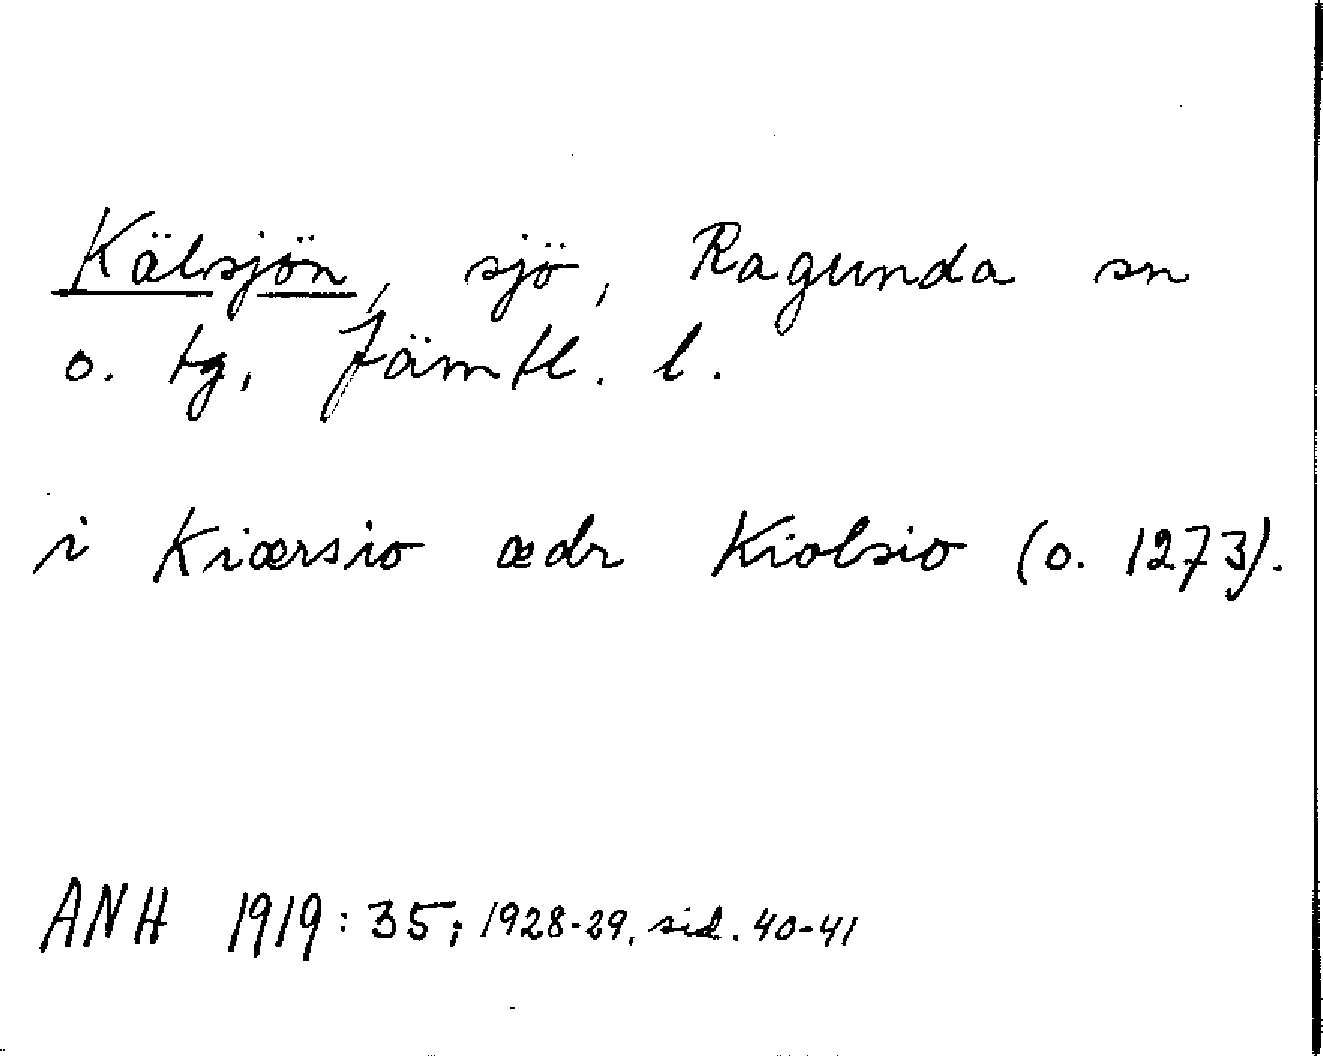 Kälsjön, sjö, Ragunda sn
o. tg, Jämtl. l.
i Kiærsio ædr Kiolsio (o. 1273).
ANH 1919: 35; 1928-29, sid. 40-41